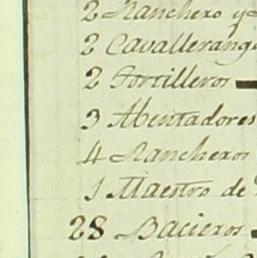 2 Ranchero y
2 Cavallerang
2 Tortilleros
3 Abentadores
4 Rancheros
1 Maestro de
28 Bacieros